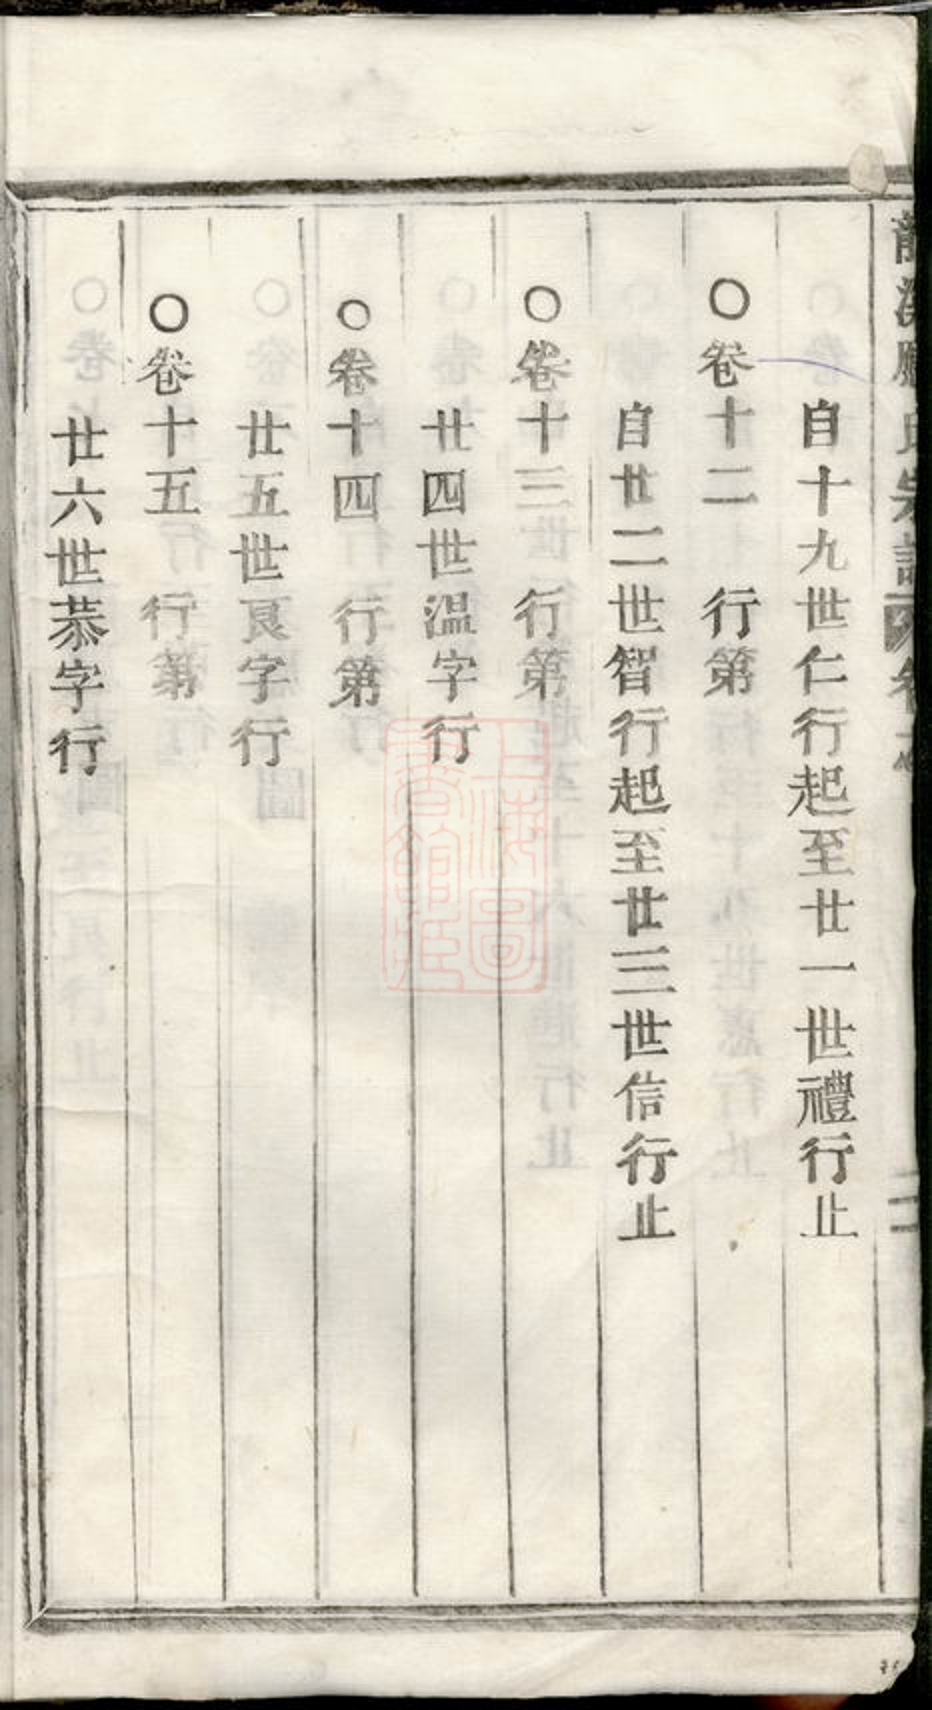 氏宗譜
自十九世仁行起至廿一世禮行止
○卷十二 行第
自廿二世智行起至廿三世信行止
○卷十三 行第
廿四世温字行
○卷十四 行第
廿五世良字行
○卷十五 行第
廿六世恭字行
上海圖書館藏